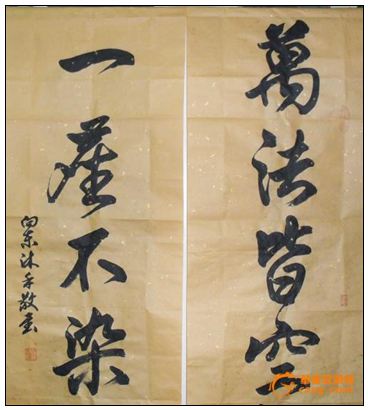 萬法皆空
一塵不染
沐手敬書